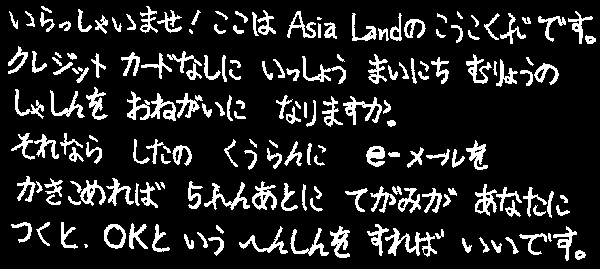 いらっしゃいませ！ここは Asia Landの こうこくがです。
クレジット カードなしに いっしょう まいにち むりょうの
しゃしんを おねがいに なりますか。
それなら したの くうらんに e-メールを
かきこめれば 5ふんあとに てがみが あなたに
つくと、OKと いう へんしんを すれば いいです。